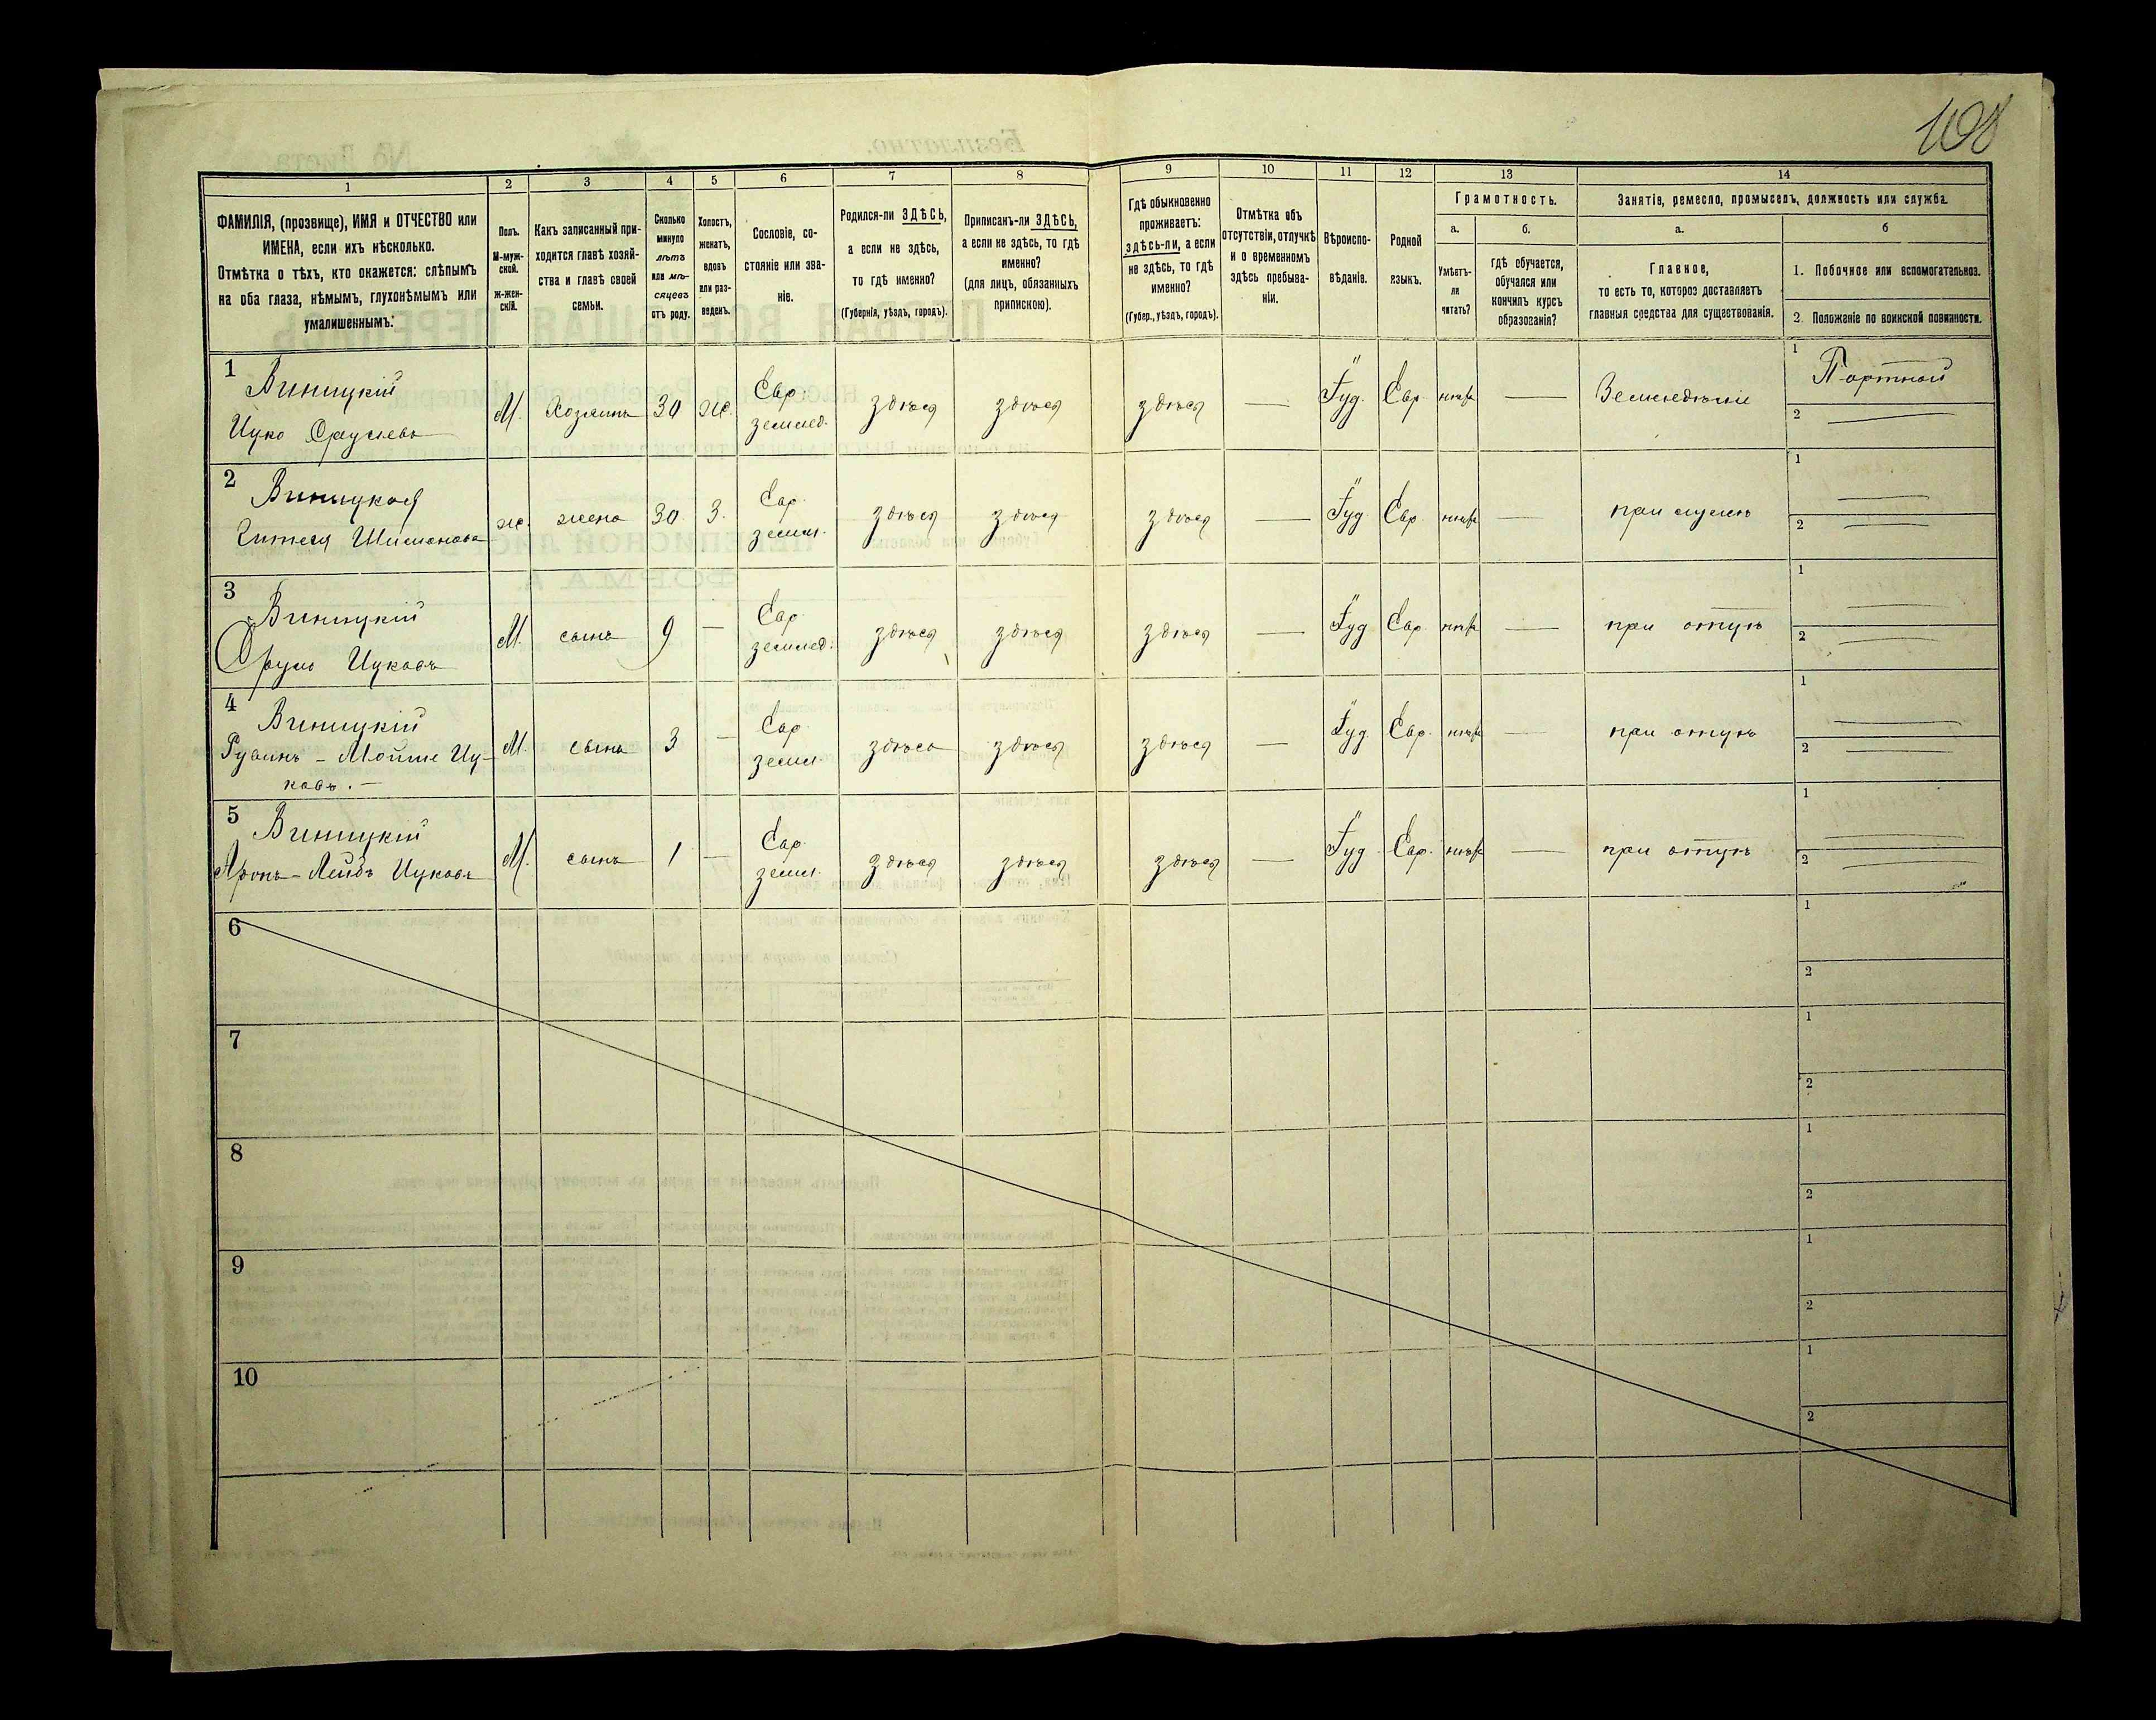 108
1 2 3 4 5 6 7 8 9 10 11 12 13 14
ФАМИЛІЯ, (прозвище), ИМЯ и ОТЧЕСТВО или
ИМЕНА, если ихъ нѣсколько.
Отмѣтка о тѣхъ, кто окажется: слѣпымъ
на оба глаза, нѣмымъ, глухонѣмымъ или
умалишеннымъ.
Полъ.
М-муж-
ской.
ж-жен-
скій.
Какъ записанный при-
ходится главѣ хозяй-
ства и главѣ своей
семьи.
Сколько
минуло
лѣтъ
или мѣ-
сяцевъ
отъ роду.
Холостъ,
женатъ,
вдовъ
или раз-
веденъ.
Сословіе, со-
стояніе или зва-
ніе.
Родился-ли ЗДѢСЬ,
а если не здѣсь,
то гдѣ именно?
(Губернія, уѣздъ, городъ).
Приписанъ-ли ЗДѢСЬ,
а если не здѣсь, то гдѣ
именно?
(для лицъ, обязанныхъ
припискою).
Гдѣ обыкновенно
проживаетъ:
здѣсь-ли, а если
не здѣсь, то гдѣ
именно?
(Губер., уѣздъ, городъ).
Отмѣтка объ
отсутствіи, отлучкѣ
и о временномъ
здѣсь пребыва-
ніи.
Вѣроиспо-
вѣданіе.
Родной
языкъ.
Грамотность.
а.
Умѣетъ-
ли
читать?
б.
гдѣ обучается,
обучался или
кончилъ курсъ
образованія?
Занятіе, ремесло, промыселъ, должность или служба.
а.
Главное,
то есть то, которое доставляетъ
главныя средства для существованія.
б
1. Побочное или вспомогательное.
2. Положеніе по воинской повинности.
1 Виницкій
Ицко Сруле­въ
М. Хозяинъ 30 ж. Евр. землед. здѣся здѣся здѣся — Іуд. Евр. нѣтъ — Земледѣліе 1 Портной
2
2 Виницкая
Гитея Шимонова
ж. жена 30 з. Евр.земл. здѣся здѣся здѣся — Іуд Евр. нѣтъ — при мужѣ 1
2
3 Виницкій
Сруль Ицковъ
М. сынъ 9 — Евр землед. здѣся здѣся здѣся — Іуд Евр. нѣтъ — при отцѣ 1
2
4 Виницкій
Рувинъ - Мойше Иц-
ковъ. —
М. сынъ 3 — Евр. земл. здѣсь здѣся здѣся — Іуд. Евр. нѣтъ — при отцѣ 1
2
5 Виницкій
Аронъ - Лейбъ Ицковъ
М. сынъ 1 — Евр. земл. здѣся здѣся здѣся — Іуд Евр. нѣтъ — при отцѣ 1
2
6 1
2
7 1
2
8 1
2
9 1
2
10 1
2